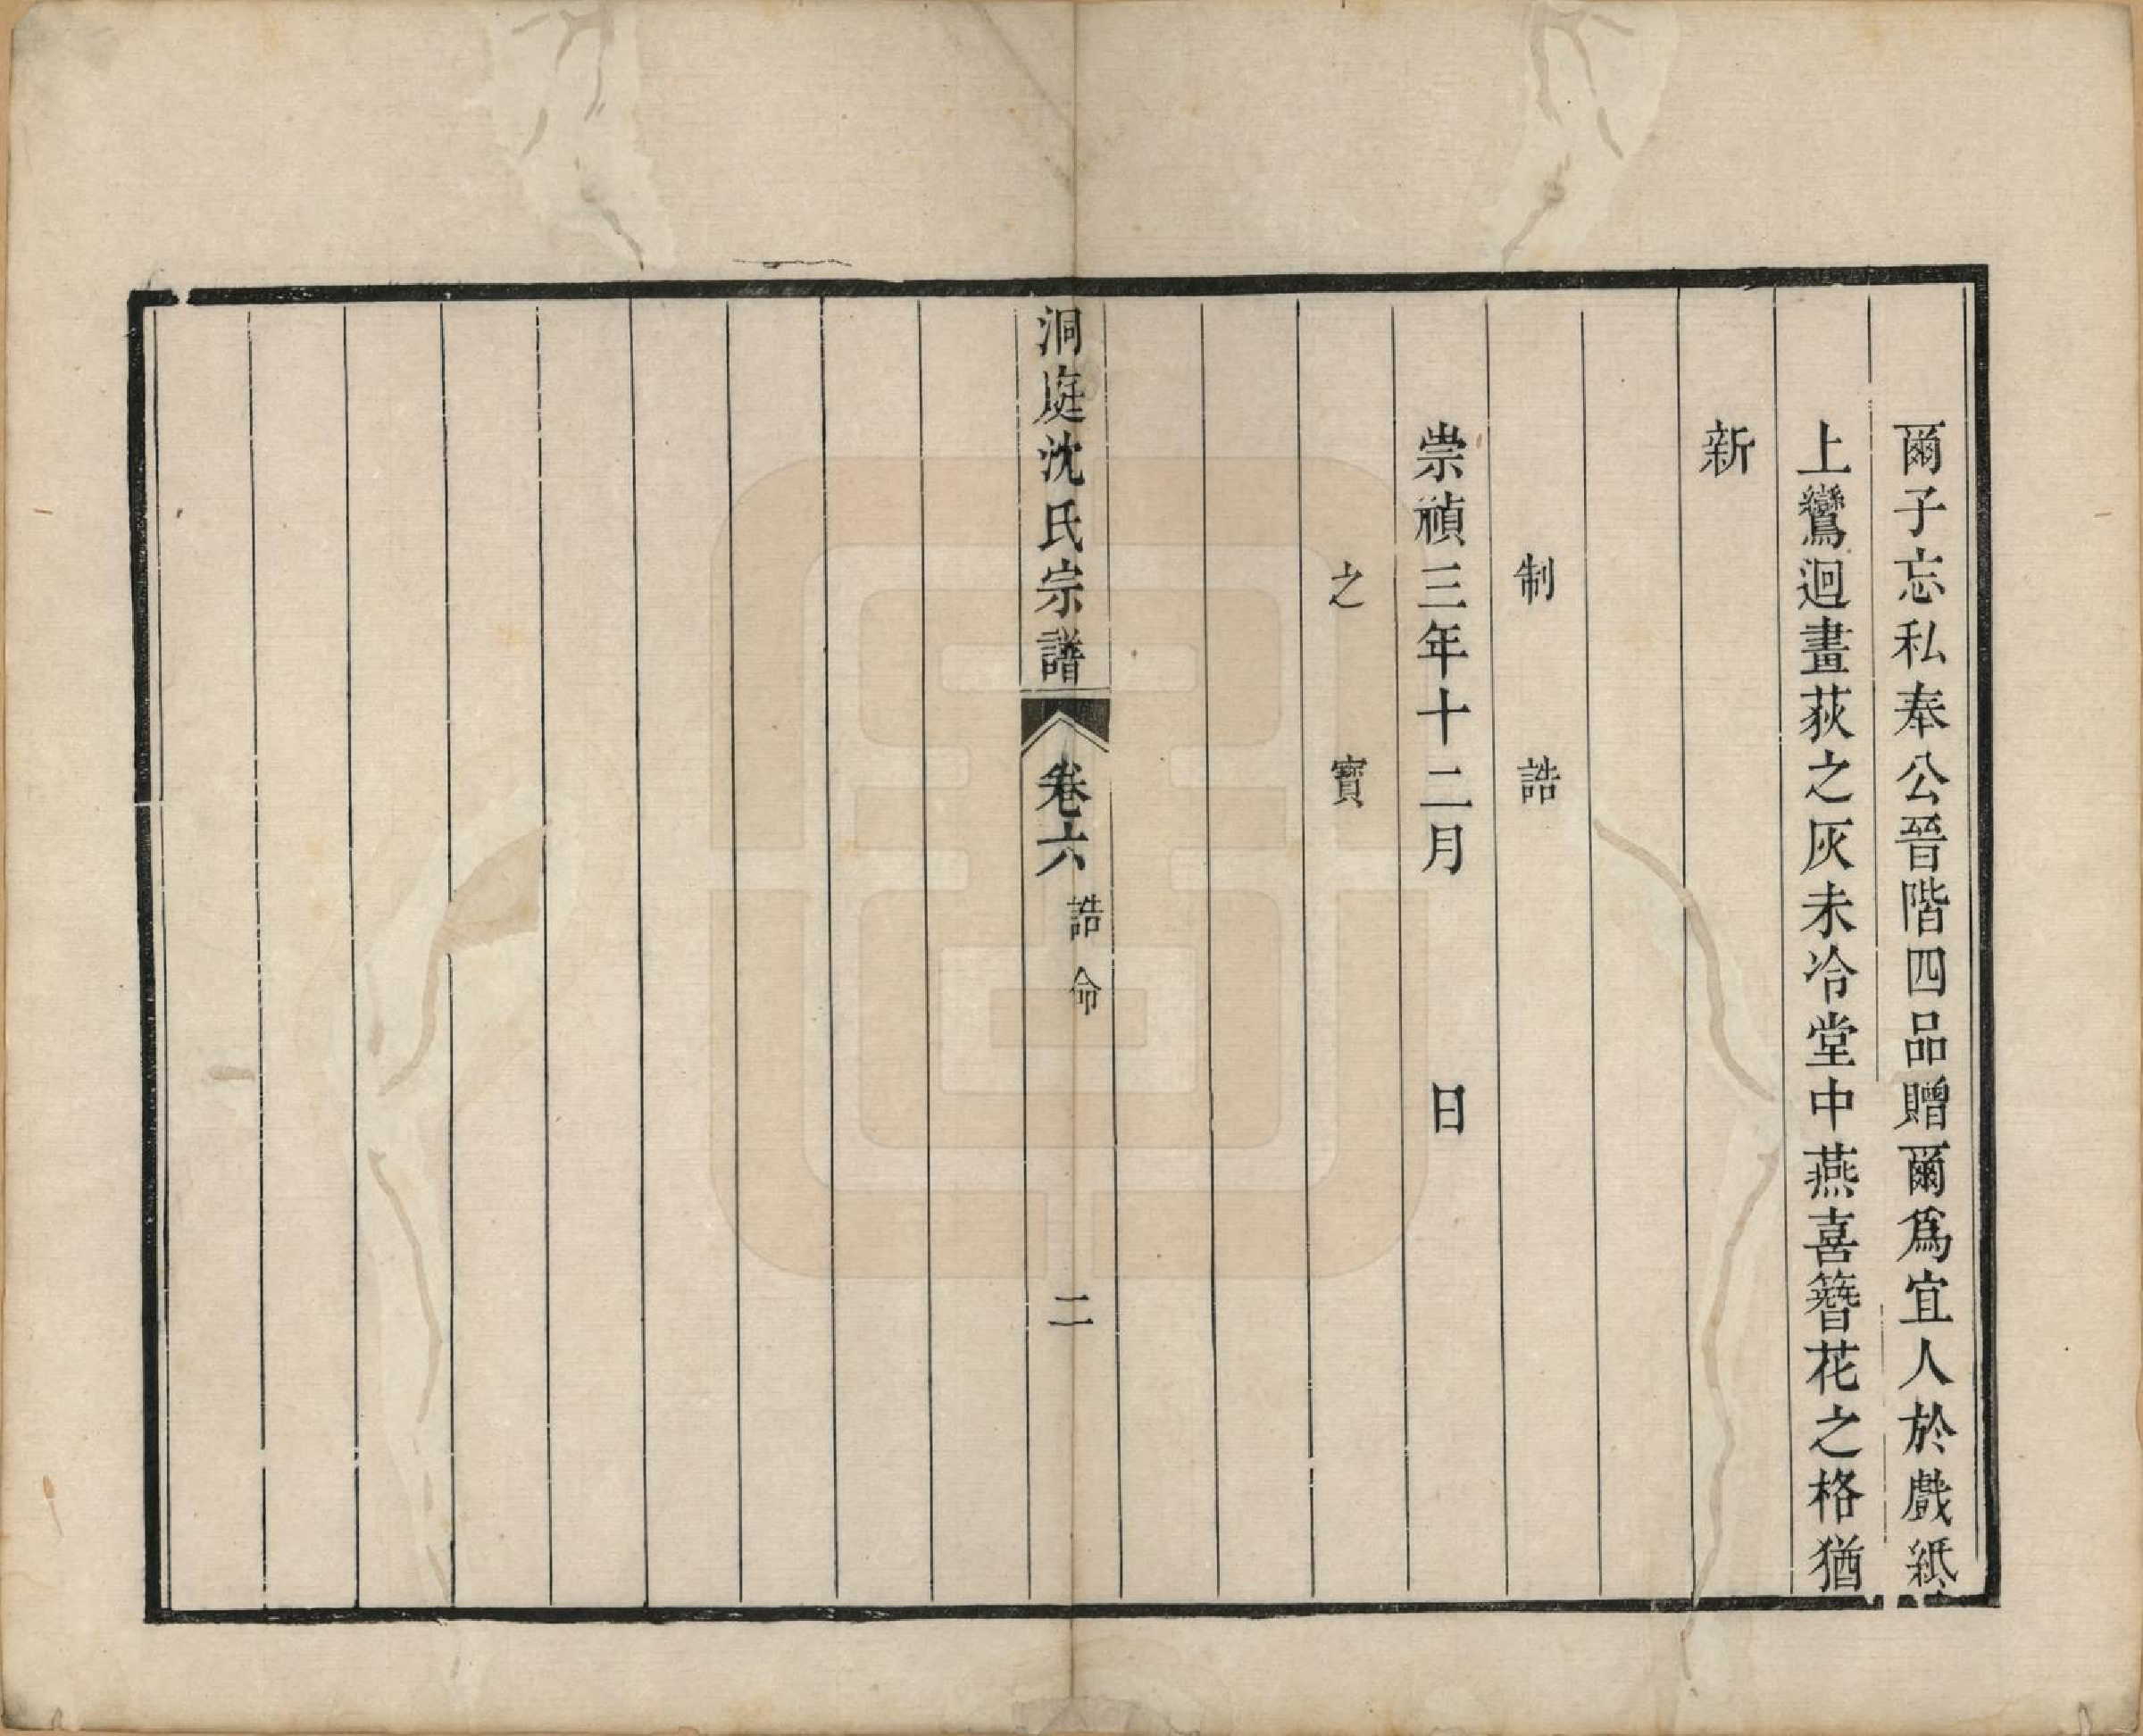 爾子忘私奉公晉階四品贈爾爲宜人於戲紙
上鸞迴畫荻之灰未冷堂中燕喜簪花之格猶
新
制誥
崇禎三年十二月日
之寶
洞庭沈氏宗譜 卷六 誥命 二